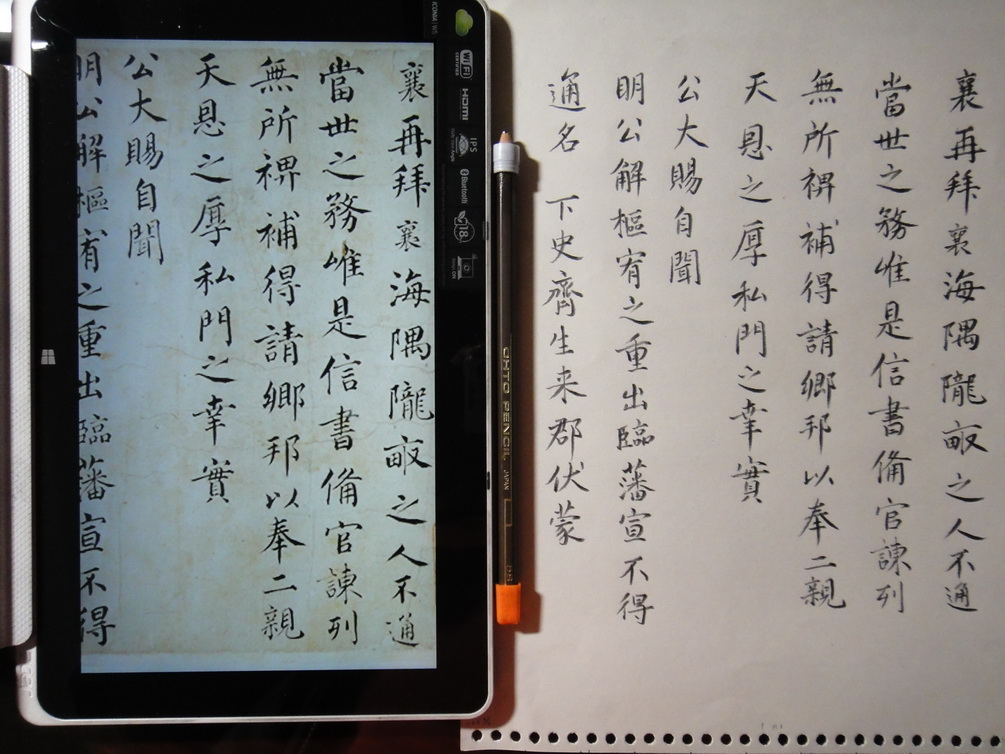 襄再拜襄海隅隴畝之人不通
當世之務唯是信書備官諫列
無所裨補得請鄉邦以奉二親
天恩之厚私門之幸實
公大賜自聞
明公解樞宥之重出臨藩宣不得
ICONIA W4
WiFi CERTIFIED
HDMI
IPS
Bluetooth
OHTO PENCIL JAPAN
襄再拜襄海隅隴畝之人不通
當世之務唯是信書備官諫列
無所裨補得請鄉邦以奉二親
天恩之厚私門之幸實
公大賜自聞
明公解樞宥之重出臨藩宣不得
通名 下史齊生来郡伏蒙